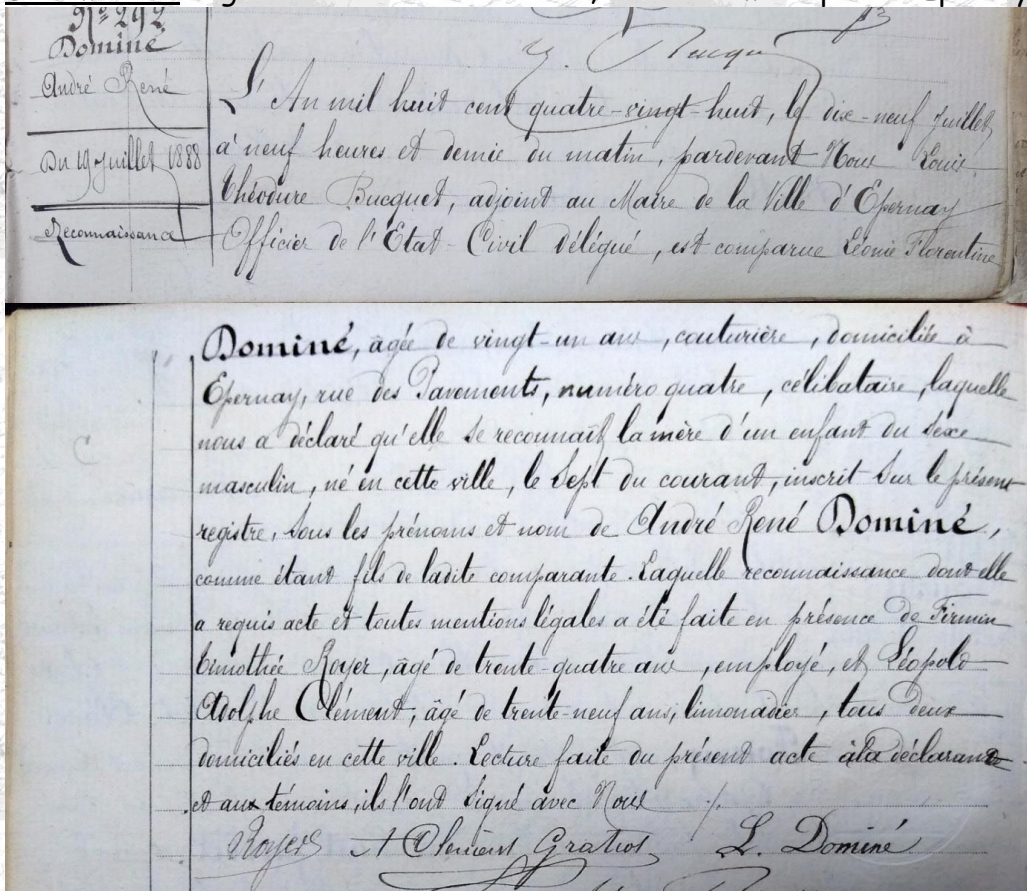 N° 292
Dominé
André René
Du 19 Juillet 1888
Reconnaissance
L'An mil huit cent quatre-vingt-huit, le dix-neuf Juillet,
à neuf heures et demie du matin, pardevant Nous Louis
Théodore Bucquet, adjoint au Maire de la Ville d'Epernay
Officier de l'Etat-Civil délégué, est comparue Léonie Florentine
Dominé, âgée de vingt-un ans, couturière, domiciliée à
Epernay, rue des Pavements, numéro quatre, célibataire, laquelle
nous a déclaré qu'elle se reconnaît la mère d'un enfant du sexe
masculin, né en cette ville, le sept du courant, inscrit sur le présent
registre, sous les prénoms et nom de André René Dominé,
comme étant fils de ladite comparante. Laquelle reconnaissance dont elle
a requis acte et toutes mentions légales a été faite en présence de Firmin
Timothée Royer, âgé de trente-quatre ans, employé, et Léopold
Adolphe Clément, âgé de trente-neuf ans, limonadier, tous deux
domiciliés en cette ville. Lecture faite du présent acte à la déclarante
et aux témoins, ils l'ont signé avec Nous ./.
Royer A Clément Gratiot L. Dominé